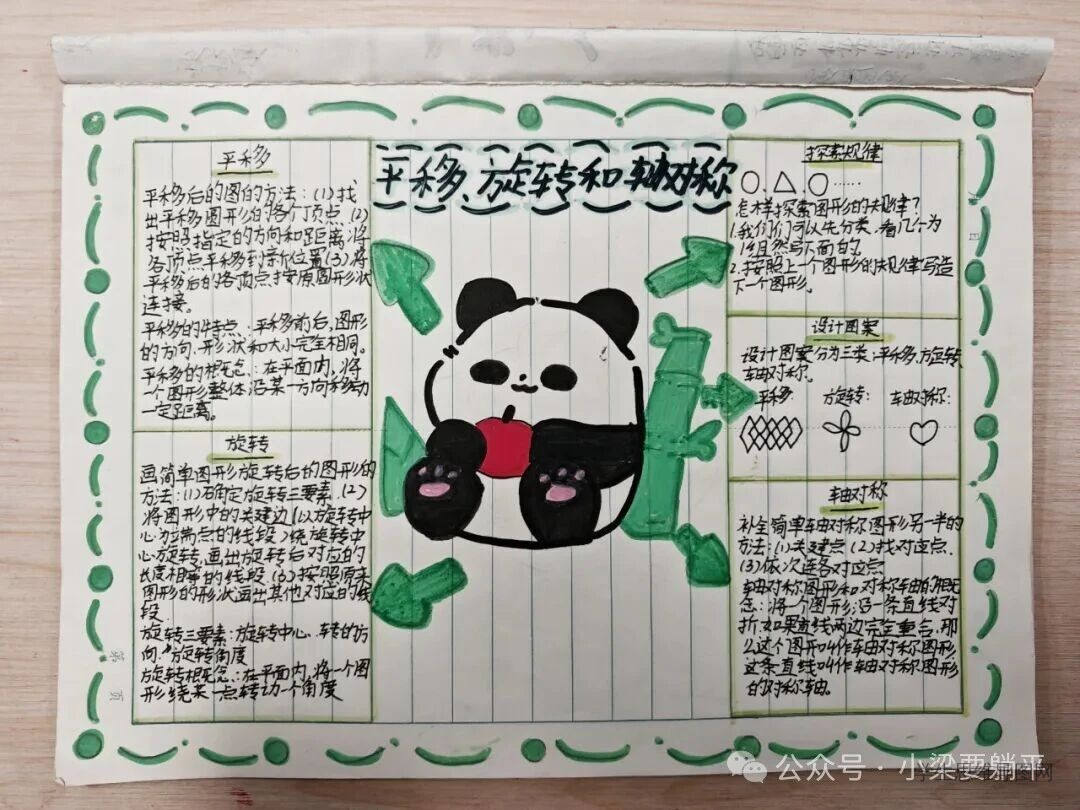 平移、旋转和轴对称
平移
平移后的图的方法：(1)找
出平移图形的各个顶点(2)
按照指定的方向和距离将
各顶点平移到新位置(3)将
平移后的各顶点按原图形状
连接。
平移的特点：平移前后，图形
的方向、形状和大小完全相同。
平移的概念：在平面内，将
一个图形整体沿某一方向移动
一定距离。
旋转
画简单图形旋转后的图形的
方法：(1)确定旋转三要素(2)
将图形中的关建边(以旋转中
心为端点的线段)绕旋转中
心旋转，画出旋转后对应的
长度相等的线段(3)按照原来
图形的形状画出其他对应的线
段
旋转三要素：旋转中心、转的方
向、旋转角度
旋转概念：在平面内，将一个图
形绕某一点转动一个角度
探索规律
……
怎样探索图形的规律？
1.我们们可以先分类，看几个为
1组然写下面的。
2.按照上一个图形的规律写造
下一个图形。
设计图案
设计图案分为三类：平移、旋转、
轴对称。
平移： 旋转： 轴对称：
轴对称
补全简单轴对称图形另一半的
方法：(1)关建点(2)找对应点
(3)依次连各对应点
轴对称图形和对称轴的概
念：将一个图形沿一条直线对
折，如果直线两边完全重合，那
么这个图形叫作轴对称图形
这条直线叫作轴对称图形
的对称轴。
第 页
公众号·小梁要躺平